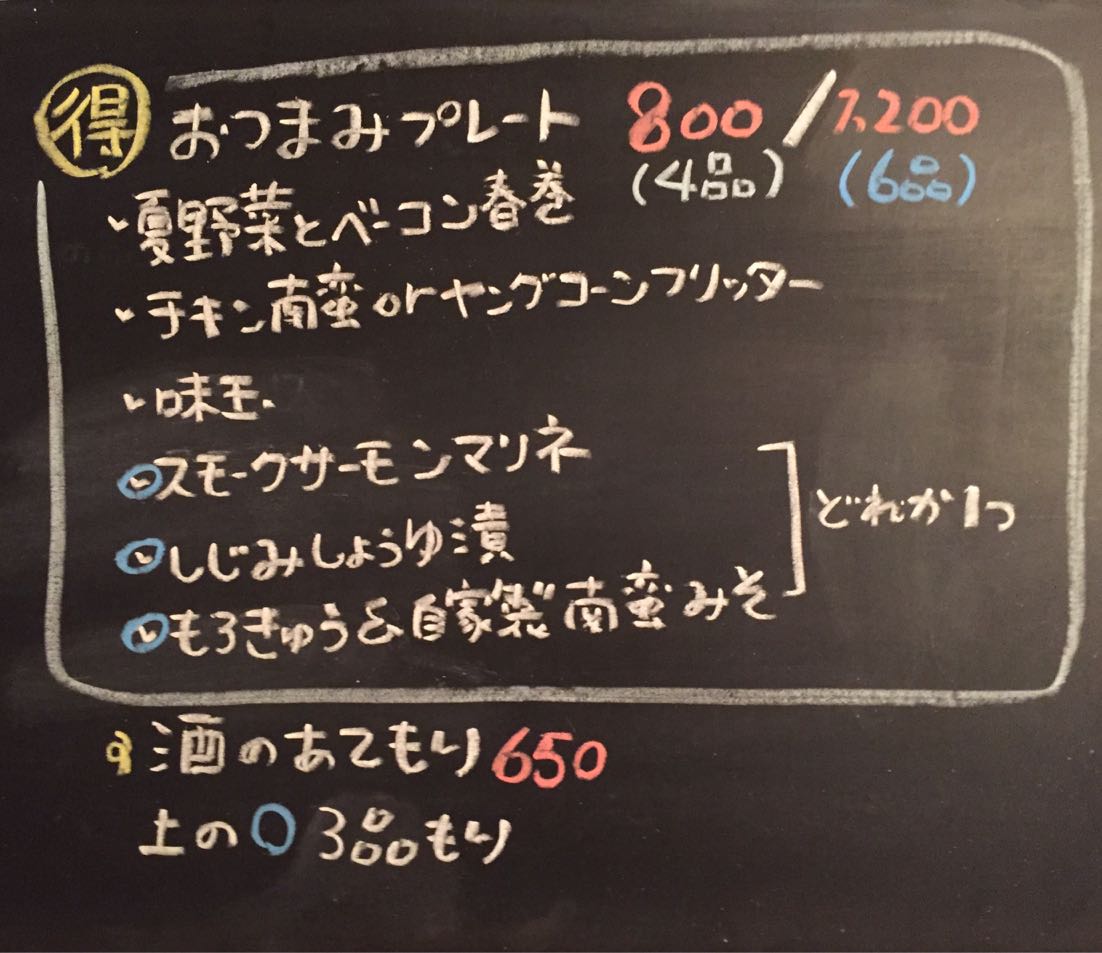 得 おつまみプレート 800/1,200
(4品) (6品)
・夏野菜とベーコン春巻
・チキン南蛮orヤングコーンフリッター
・味玉
・スモークサーモンマリネ
・しじみしょうゆ漬
・もろきゅう&自家製南蛮みそ
どれか1つ
酒のあてもり650
上の○3品もり